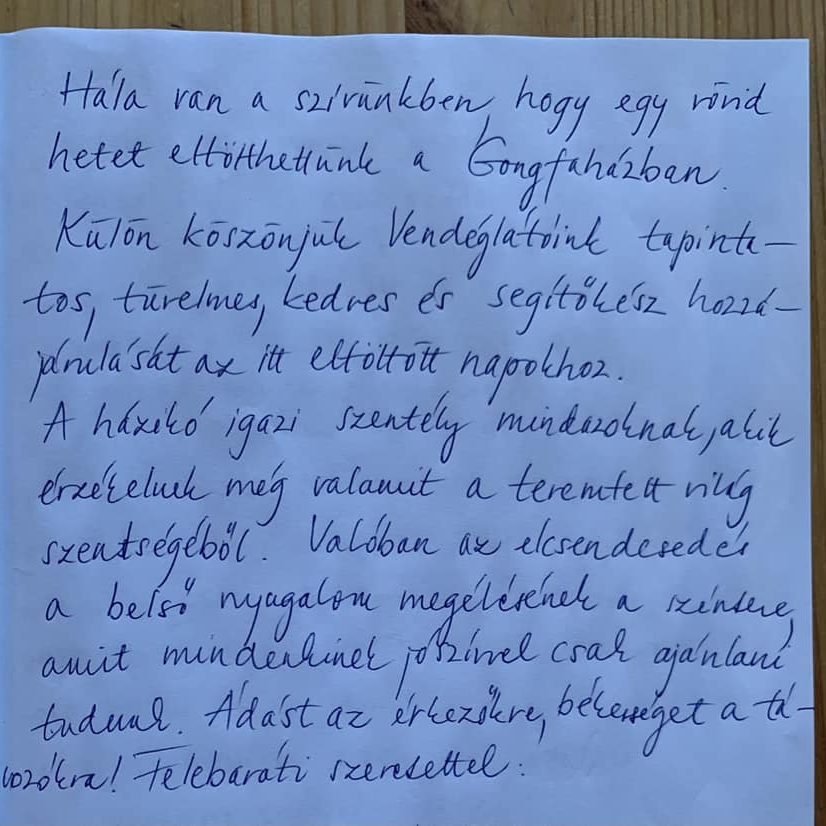 Hála van a szívünkben, hogy egy rövid
hetet eltölthettünk a Gongfaházban.
Külön köszönjük Vendéglátóink tapinta-
tos, türelmes, kedves és segítőkész hozzá-
járulását az itt eltöltött napokhoz.
A házikó igazi szentély mindazoknak, akik
érzékelnek még valamit a teremtett világ
szentségéből. Valóban az elcsendesedés
a belső nyugalom megélésének a színtere,
amit mindenkinek jószívvel csak ajánlani
tudunk. Áldást az érkezőkre, békességet a tá-
vozókra! Felebaráti szeretettel: